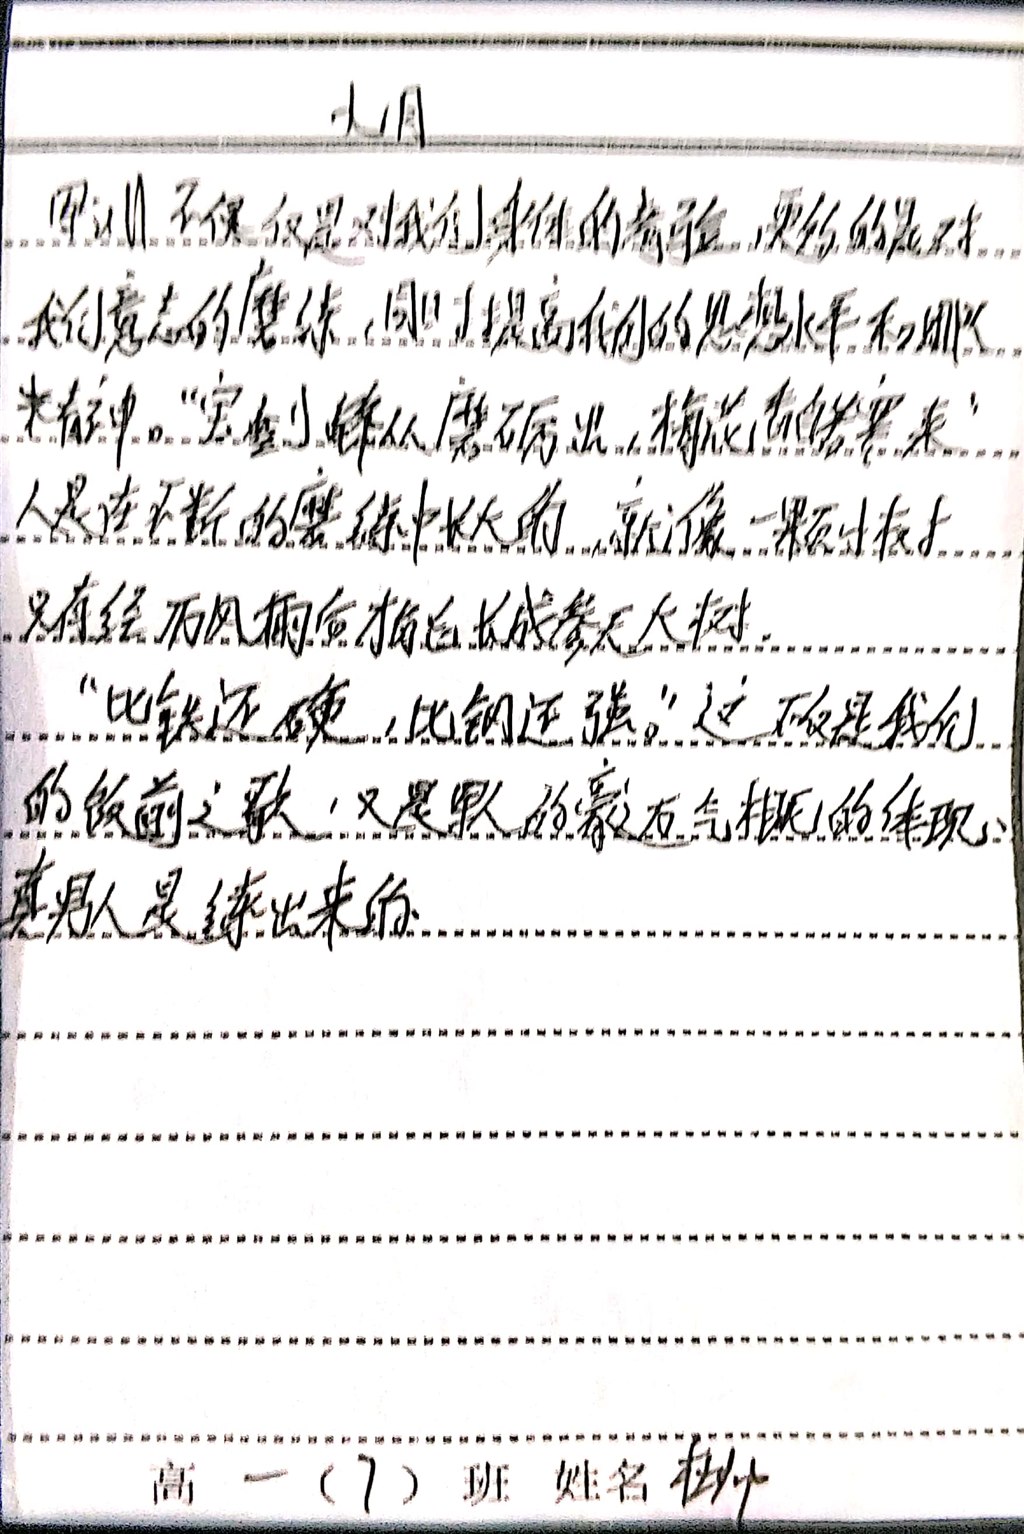 军训不仅仅是对我们身体的考验,更多的是对
我们意志的磨练,同时提高我们的思想水平和
未有神。"宝剑峰从磨砺出,梅花香借寒来"
人是在不断的磨练中长大的,就像一颗小树
只有经历风雨后才能长成参天大树.
"比铁还硬,比钢还强。"这不仅是我们
的饭前之歌,又是军人的豪迈气概的体现,
真男人是练出来的.
高一(7)班 姓名